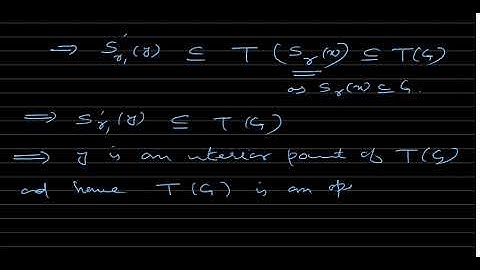 ⇒ S'r₁(y) ⊆ T (Sr(x)) ⊆ T(G)
as Sr(x) ⊆ G.
⇒ S'r₁(y) ⊆ T(G)
⇒ y is an interior point of T(G)
and hence T(G) is an op